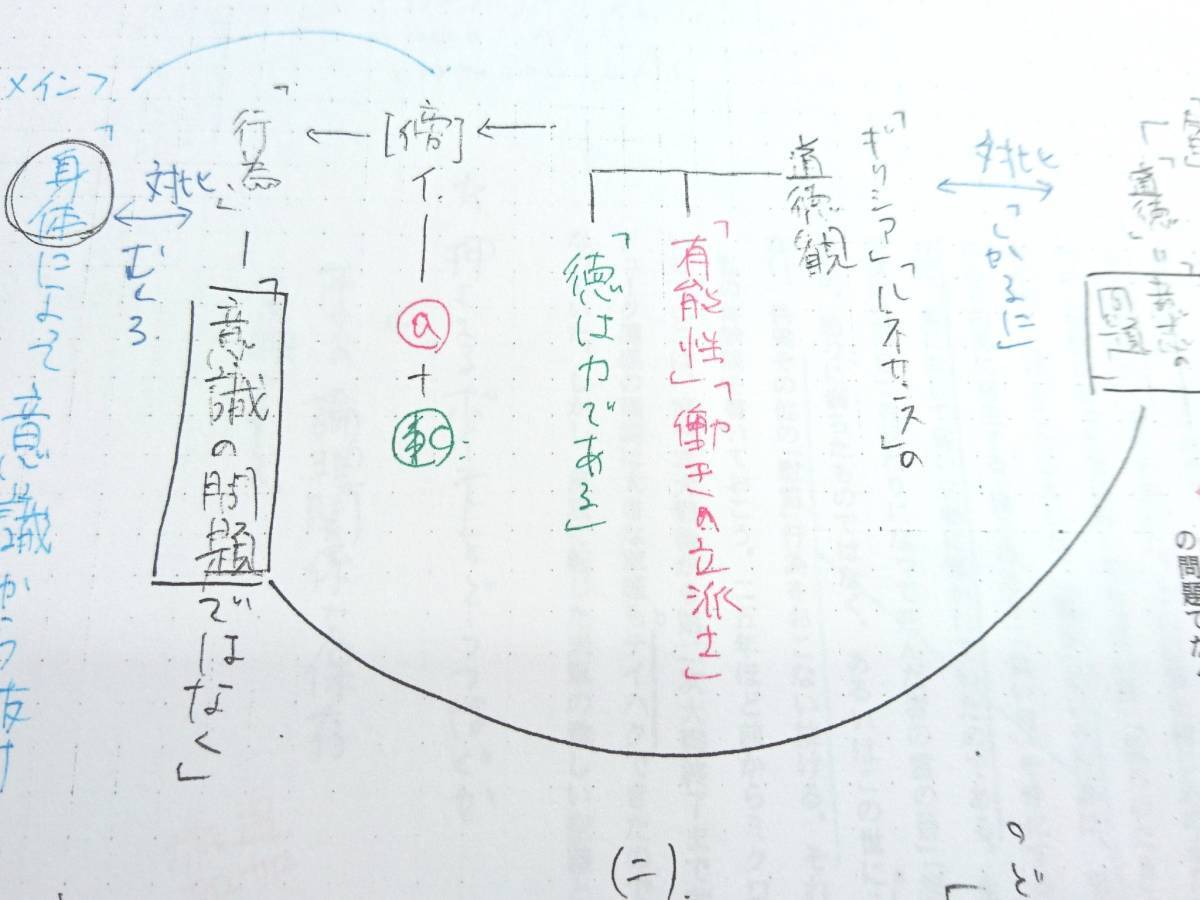 「道徳」
の問題
対比
「しかるに」
「ギリシア」「ルネサンス」の
道徳観
「有能性」「働きの立派さ」
「徳は力である」
[傍]
イ
ⓐ
+
「行為」
「意識の問題ではなく」
対比
むしろ
メインフ
「身体によって意識から友け
の問題でか
のど
(ニ)